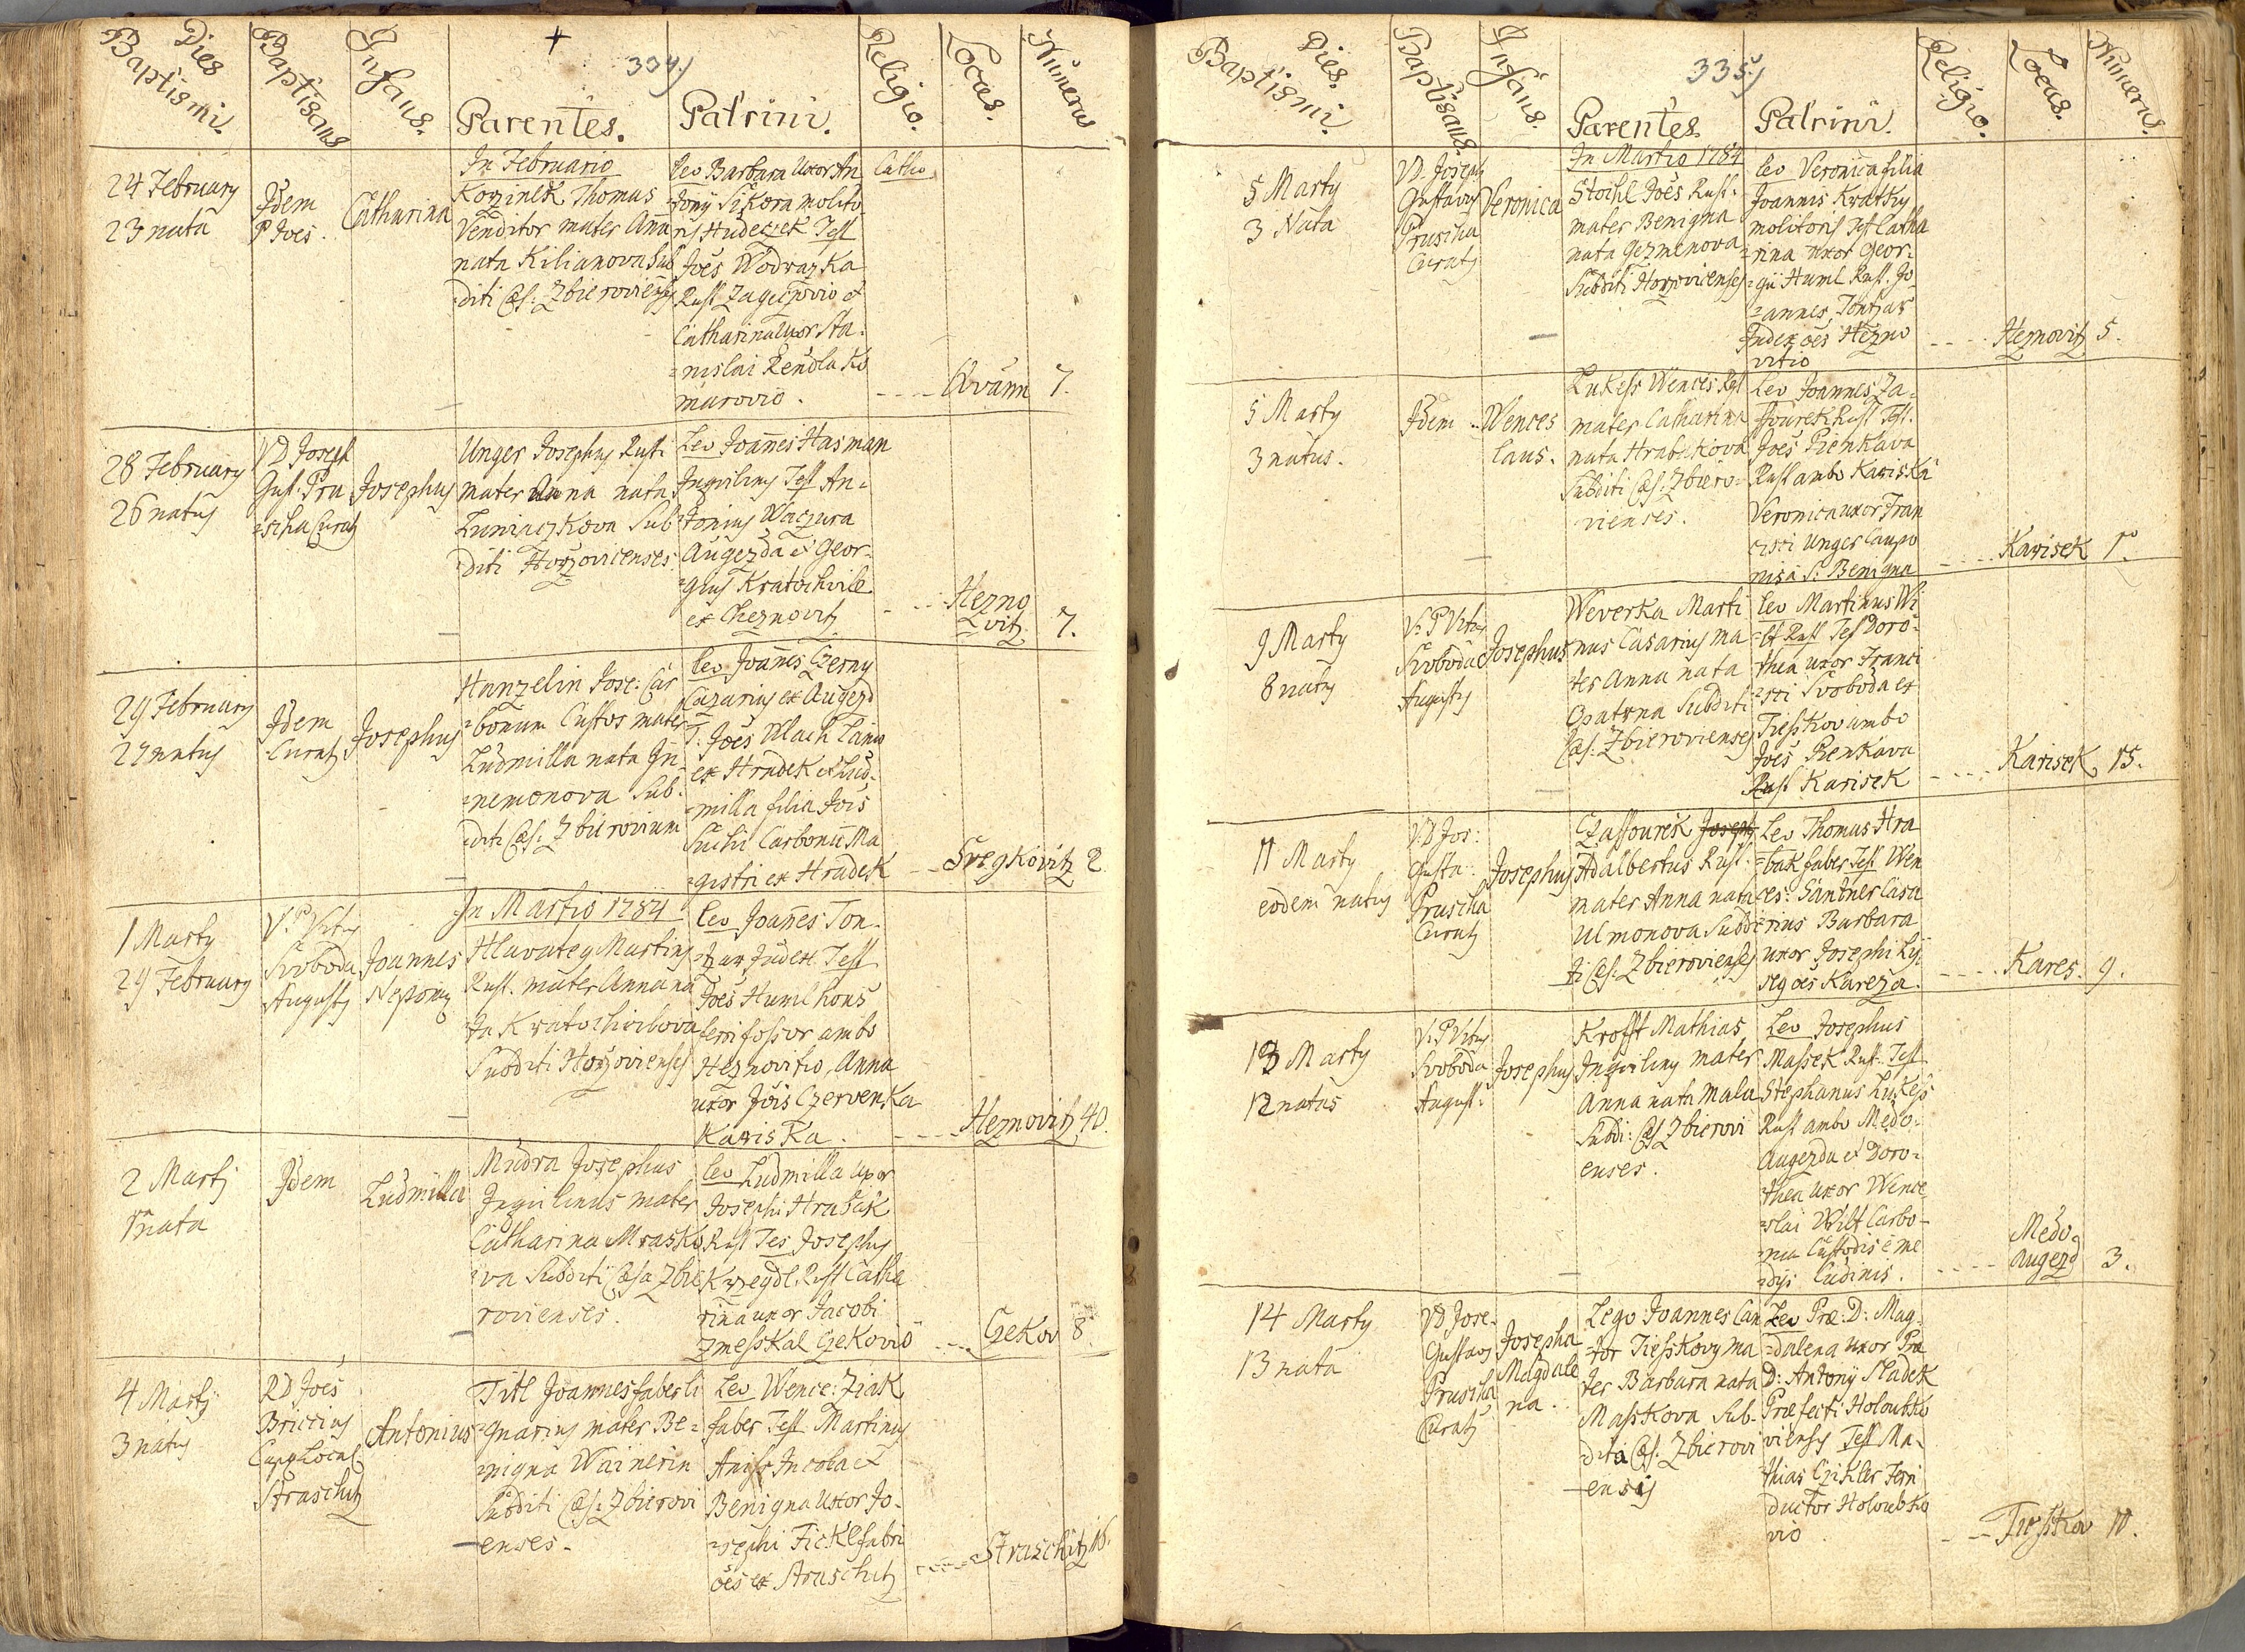 Dies Baptismi.
Baptisans
Infans.
334.)
Parentes.
Patrini.
Religio.
Locus.
Numerus
24 February
23 nata
Idem
P Joes.
Catharina
In Februario
Korzinek Thomas
Venditor mater Ann
nata Kilianova Sub
diti Cæs: Zbirovienses
Lev Barbara Uxor An
tony Sikora molito
ris Hudeczek Test
Joes Wodrazka
Rust
Catharina Uxor Sta-
nislai Rendla Ko
marovio.
Catho
Qvain 7.
28 February
26 natus
VD Joseph
Gus. Pru
scha Curatus
Josephus
Unger Josephus Rusti
mater Anna nata
Luniaczkova Sub
diti Horzovicenses
Lev Joannes Hasman
Inquilinus Test An-
tonius Waczura
Augezda et Geor-
gius Kratochvile
ex Cheznovitz
Hezno
vitz 7.
29 February
27 natus
Idem
Curatus
Josephus
Hanzelin Jose: Car
bonum Custos mater
Ludmilla nata Ju-
nemonova Sub-
diti Cæs: Zbirovium
Lev Joannes Czerny
Cazarius ex Augezd
T. Joes Wlach Lanio
ex Hradek et Lud-
milla filia Jois
Suchi Carbonu Ma
gistri ex Hradek
Svegkovitz 2
1 Marty
29 February
V. P Vitus
Svoboda
Augusty
Joannes
Nepom
In Martio 1784
Hlavatey Martinus
Rust. mater Anna na
ta Kratochvilova
Subditi Horzovienses
Lev Joannes Ton-
tzar Judex Test
Joes Huml hons
terrifossor ambo
Heznovitio, Anna
uxor Jois Czervenka
Kariska.
Heznovitz 40.
2 Marty
1 nata
Idem
Ludmilla
Mudra Josephus
Inquilinus mater
Catharina Mrasko
va Subditi Cæsa Zbi
rovienses.
Lev Ludmilla Uxor
Josephi Hrabak
Rust Tes Josephus
Krzegdl Rust Catha
rina uxor Jacobi
Zmesskal Czekovio
Czekov 8
4 Marty
3 natus
RD Joes
Briccius
Local
Straschitz
Antonius
Titl Joannes faber li
gnarius mater Be-
nigna Wainerin
Subditi Cæs: Zbirovi
enses.
Lev Wence: Ziak
faber Test Martinus
Aniss Incola et
Benigna Uxor Jo-
sephi Fickl fabri
oes ex Straschitz
Straschitz 16.
Dies. Baptismi.
Baptisans.
Infans.
335.)
Parentes.
Patrini.
Religio.
Locus.
Numerus.
5 Marty
3 Nata
VD. Joseph
Gustavus
Pruscha
Curatus
Veronica
In Martio 1784
Stoihl Joes Rust.
mater Benigna
nata Gezmenova
Subditi Horzovicenses
Lev Veronica filia
Joannis Kratky
molitoris Test Catha
rina uxor Geor-
gii Huml Rust. Jo
annes Tontzar
Judex oes Hezno
vitio
Heznovitz 5.
5 Marty
3 natus.
Idem
Wences
laus.
Lukess Wences Rst
mater Catharina
nata Hrabikova
Subditi Cæs: Zbiro-
vienses.
Lev Joannes Za-
stourek Rust Test.
Joes Pienkava
Rust ambo Kariska
Veronica uxor Fran
cisci Unger Caupo
nisa S: Benigna
Karisek 1.
9 Marty
8 natus
V. P Vitus
Svoboda
Augusty
Josephus
Weverka Marti
nus Casarius ma
ter Anna nata
Opatrna Subditi
Cæs. Zbierovienses
Lev Martinus Wi
lt Rust Test Doro-
thea uxor Franci
sci Svoboda ex
Tiesskov ambo
Joes Pienkava
Rust Karisek
Karisek 15.
11 Marty
eodem natus
V.D Jos:
Gusta:
Pruscha
Curatus
Josephus
Czastourek Joseph
Adalbertus Rust.
mater Anna nata
Ulmonova Subdi
ti Cæs. Zbierovienses
Lev Thomas Hra
bak faber Test Wen
ces: Santner Casa
rius Barbara
uxor Josephi Ly
seg oes Kareza.
Kares. 9.
13 Marty
12 natus
V. P Vitus
Svoboda
August:
Josephus
Krofft Mathias
Inquilinus mater
Anna nata Mala
Subdi: Cæs Zbierovi
enses.
Lev Josephus
Massek Rust. Test
Stephanus Lukess
Rust ambo Medo-
Augezdu et Doro-
thea uxor Wence
slai Wilt Carbo-
nu Custodis e me
dys Cudinis.
Medo
Augezd 3.
14 Marty
13 nata
VD Jose.
Gustavus
Pruscha
Curatus
Josepha
Magdale
na.
Lego Joannes Can
tor Tiesskovy ma
ter Barbara nata
Masskova Sub-
diti Cæs. Zbierovi
ensis
Lev Præ: D: Mag-
dalena uxor Præ
D: Antony Sladek
Præfecti Holoubko
viensis Test Ma-
thias Czikler Ferri
ductor Holoubko
vio
Tiesskov 11.